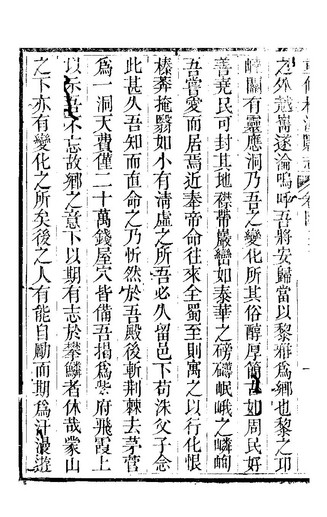 之外越巂遂淪嗚呼吾將安歸當以黎雅爲鄉也黎之邛
崍關有靈應洞乃吾之變化所其俗醇厚簡古如周民好
善堯民可封其地襟帶巖巒如泰華之磅礴岷峨之嶙峋
吾嘗愛而居焉近奉帝命往來全蜀至則寓之以行化恨
榛莽掩翳如小有清虛之所吾必久留邑下苟洙父子念
此甚久吾知而直命之乃忻然於吾殿後斬荆棘去茅菅
爲一洞天費僅二十萬錢屋穴皆備吾揭爲紫府飛霞上
以示吾不忘故鄉之意下以期有志於攀鱗者休哉蒙山
之下亦有變化之所矣後之人有能自勵而期爲汗漫遊